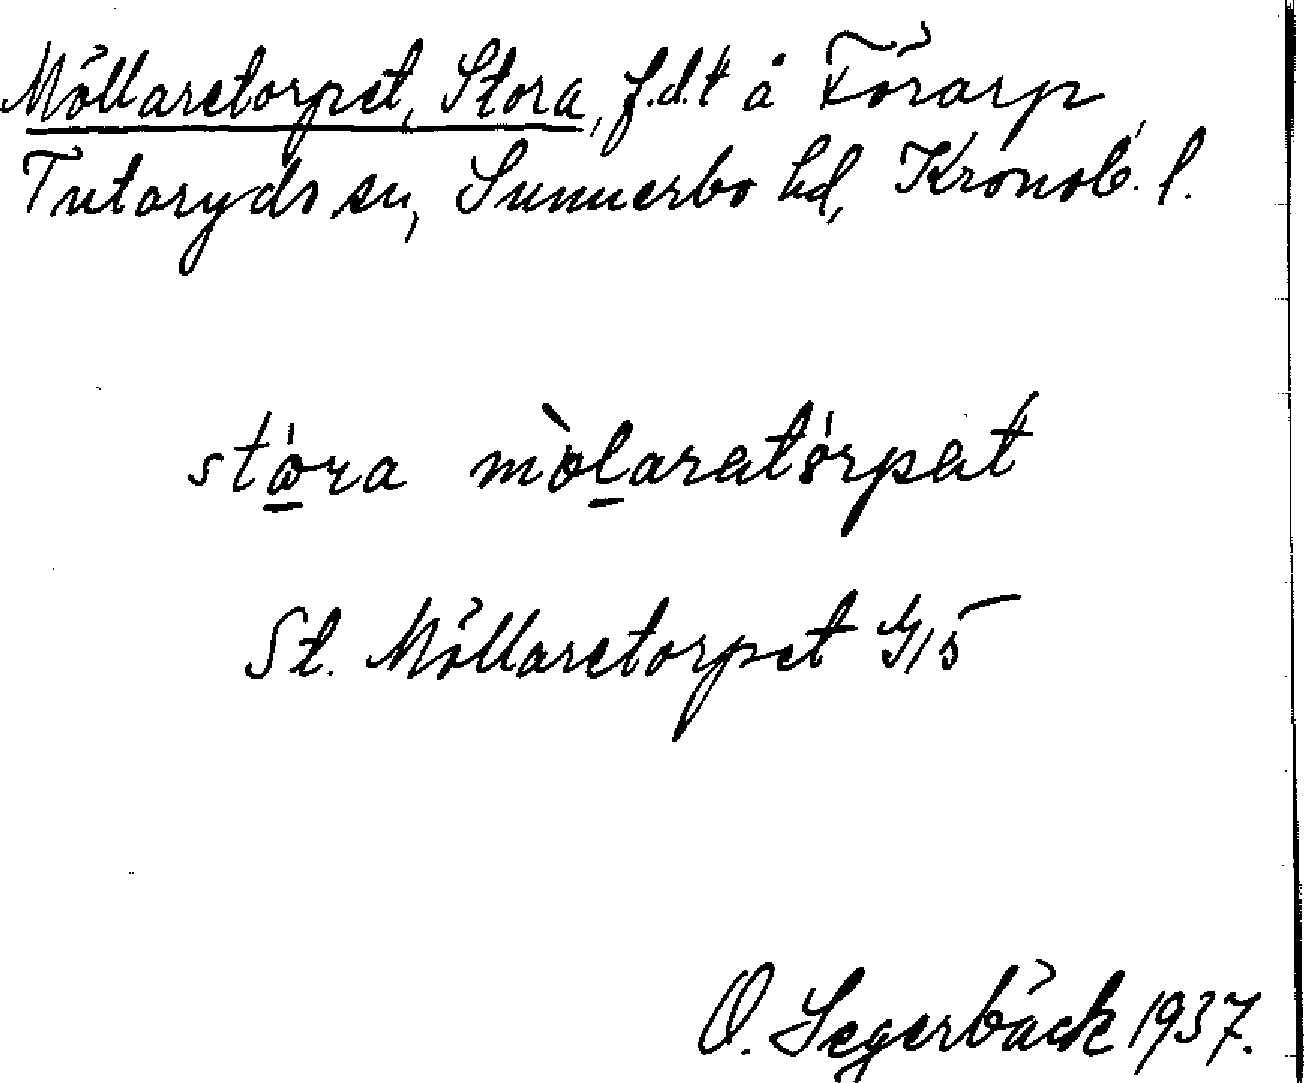 Möllaretorpet, Stora, f.d.t å Förarp
Tutaryds sn, Sunnerbo hd, Kronob. l.
stóra mòlaratórpat
St. Möllaretorpet G15
O. Segerbäck 1937.